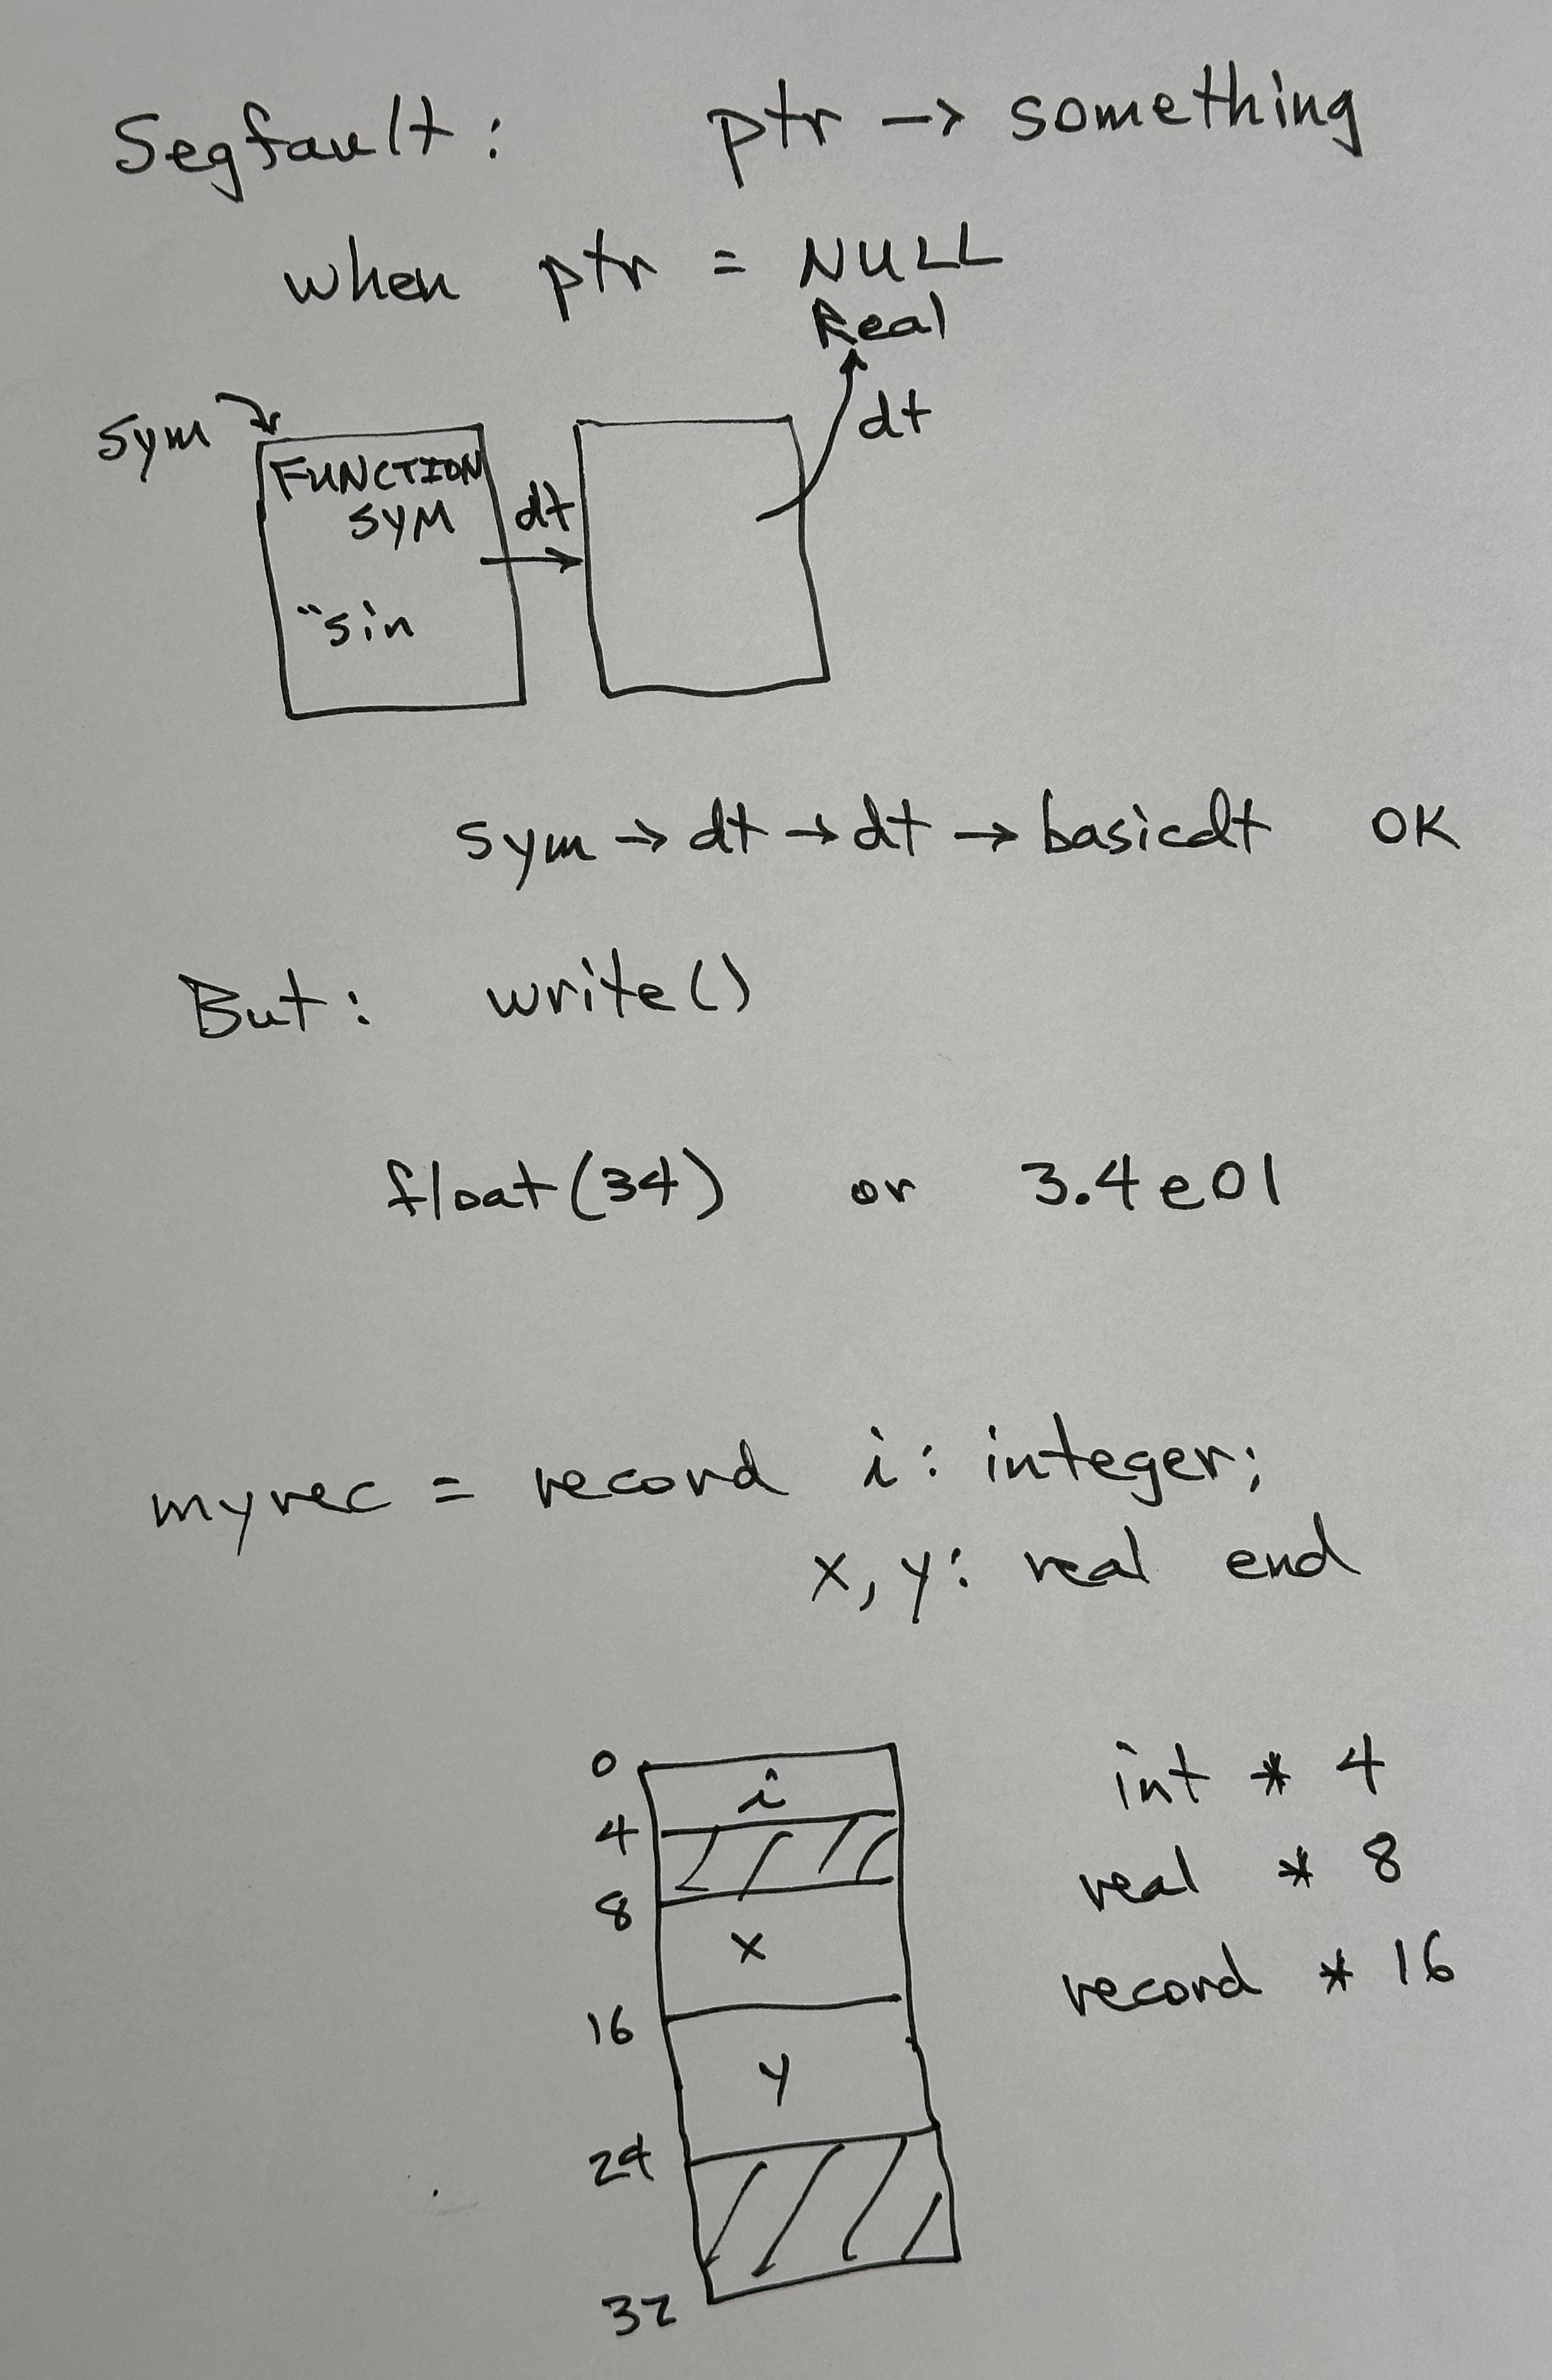 Segfault: ptr -> something
when ptr = NULL
Real
dt
sym
FUNCTION
SYM
dt
"sin
sym → dt → dt → basicdt OK
But: write()
float(34) or 3.4e01
myrec = record i: integer;
x, y: real end
0
i
int * 4
4
real * 8
8
x
record * 16
16
y
24
32